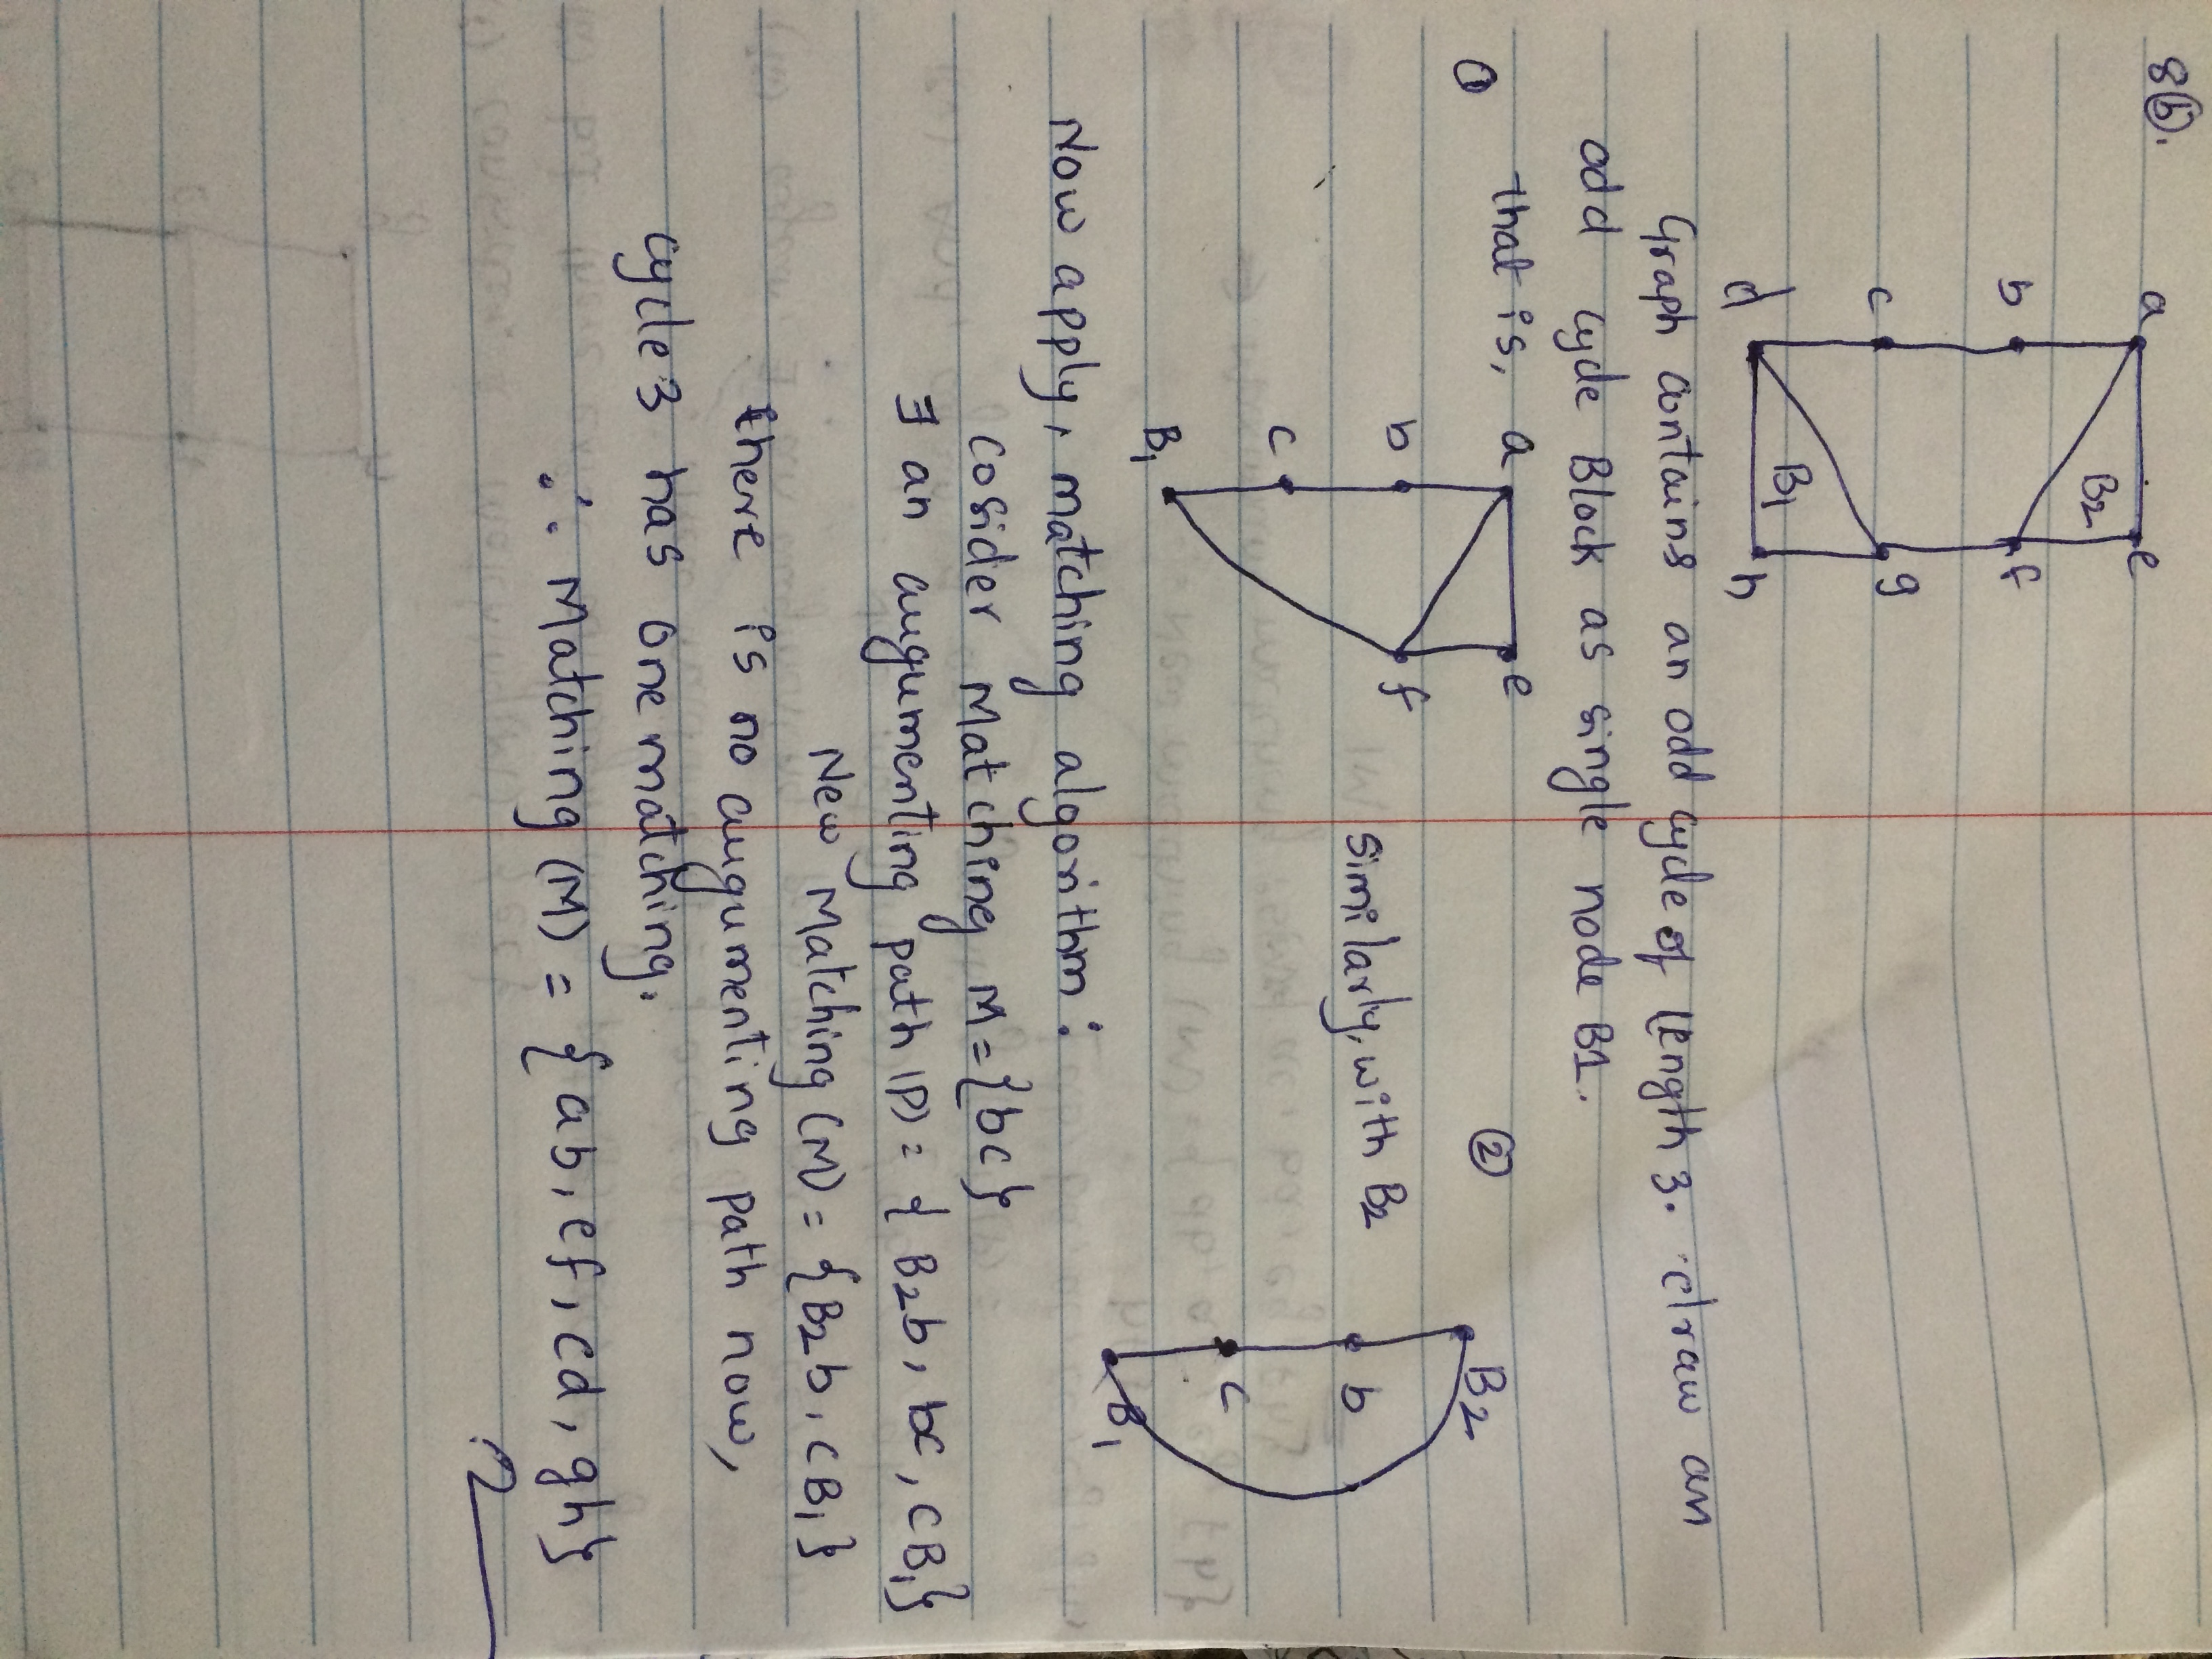 8(b).
a e
B2
b f
c g
B1
d h
Graph contains an odd cycle of length 3. draw an
odd cycle Block as single node B1.
① that is, a e
b f
c
B1
Similarly, with B2
②
B2
b
c
B1
Now apply, matching algorithm:
Cosider Matching M={bc}
∃ an augumenting path (P) = { B2b, bc, cB1}
New Matching (M) = {B2b, cB1}
there is no augumenting path now,
cycle 3 has one matching.
∴ Matching (M) = {ab, ef, cd, gh}